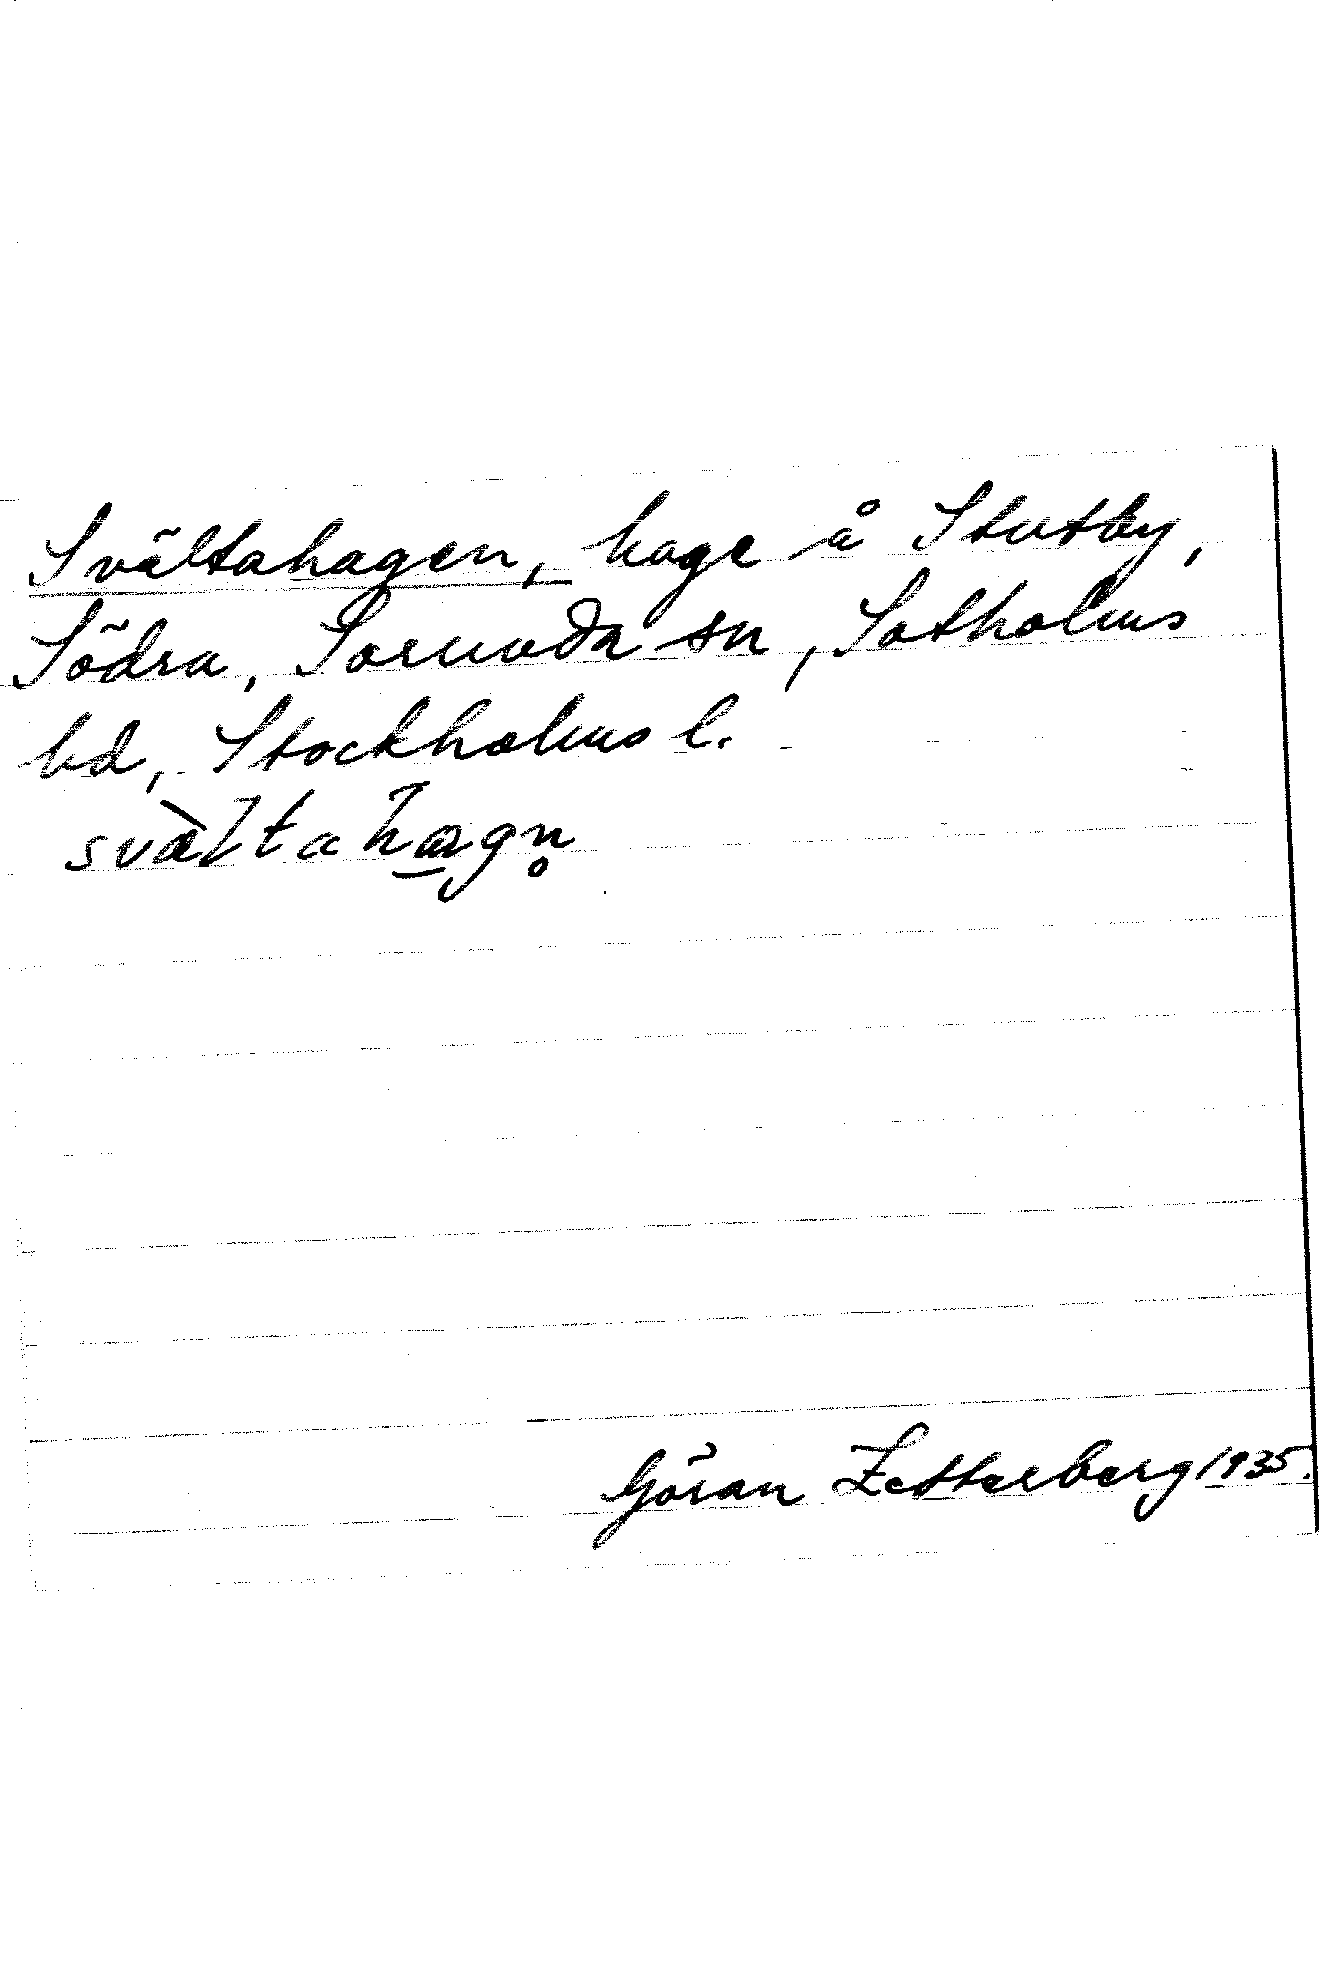 Svältahagen, hage å Stutby,
Södra, Sorunda sn, Sotholms
hd, Stockholms l.
svàltahagn̥
Göran Zetterberg 1935.